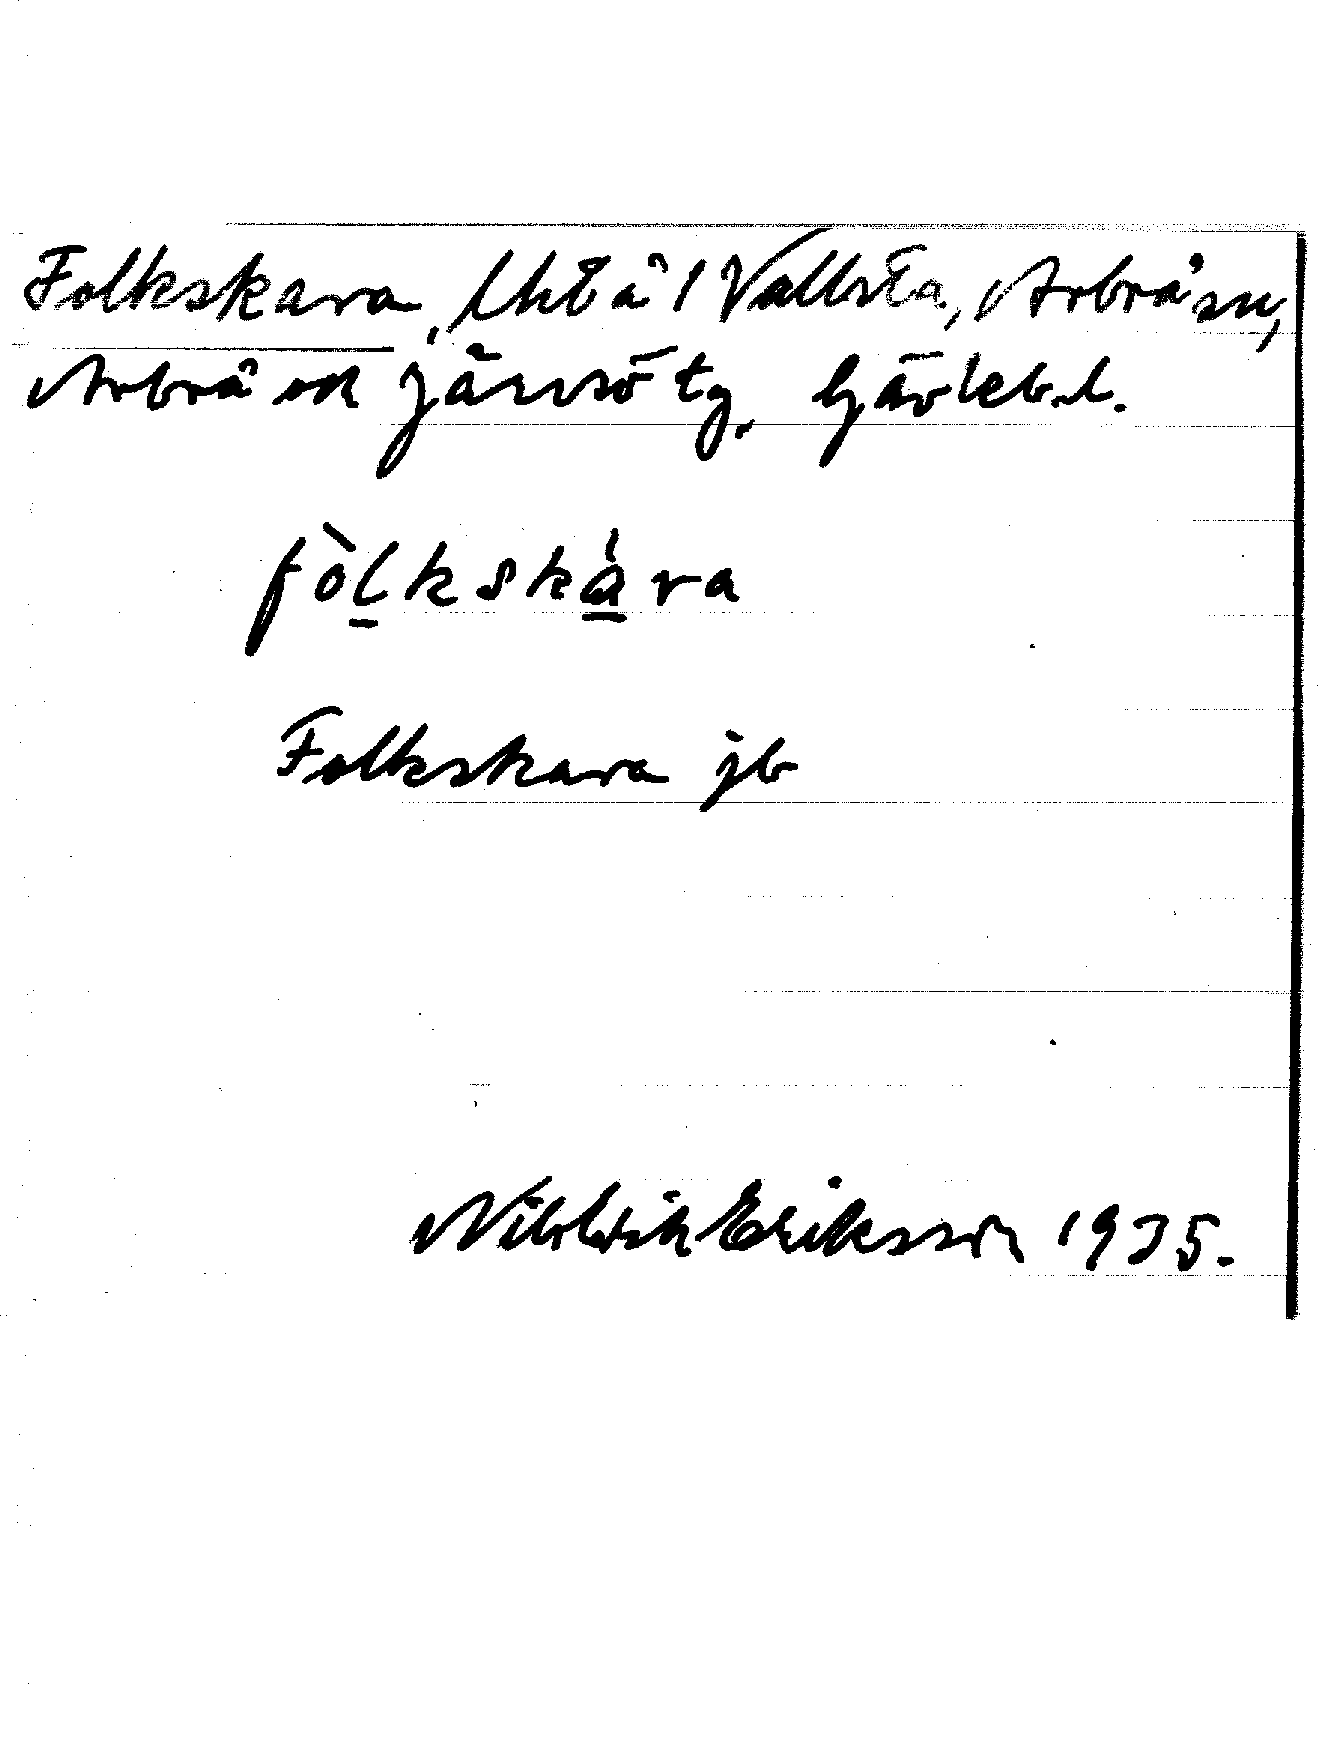 Folkskara, lht å 1 Vallsta, Arbrå sn,
Arbrå och Järvsö tg. Gävleb. l.
fòlkskára
Folkskara jb
Eriksson 1935.